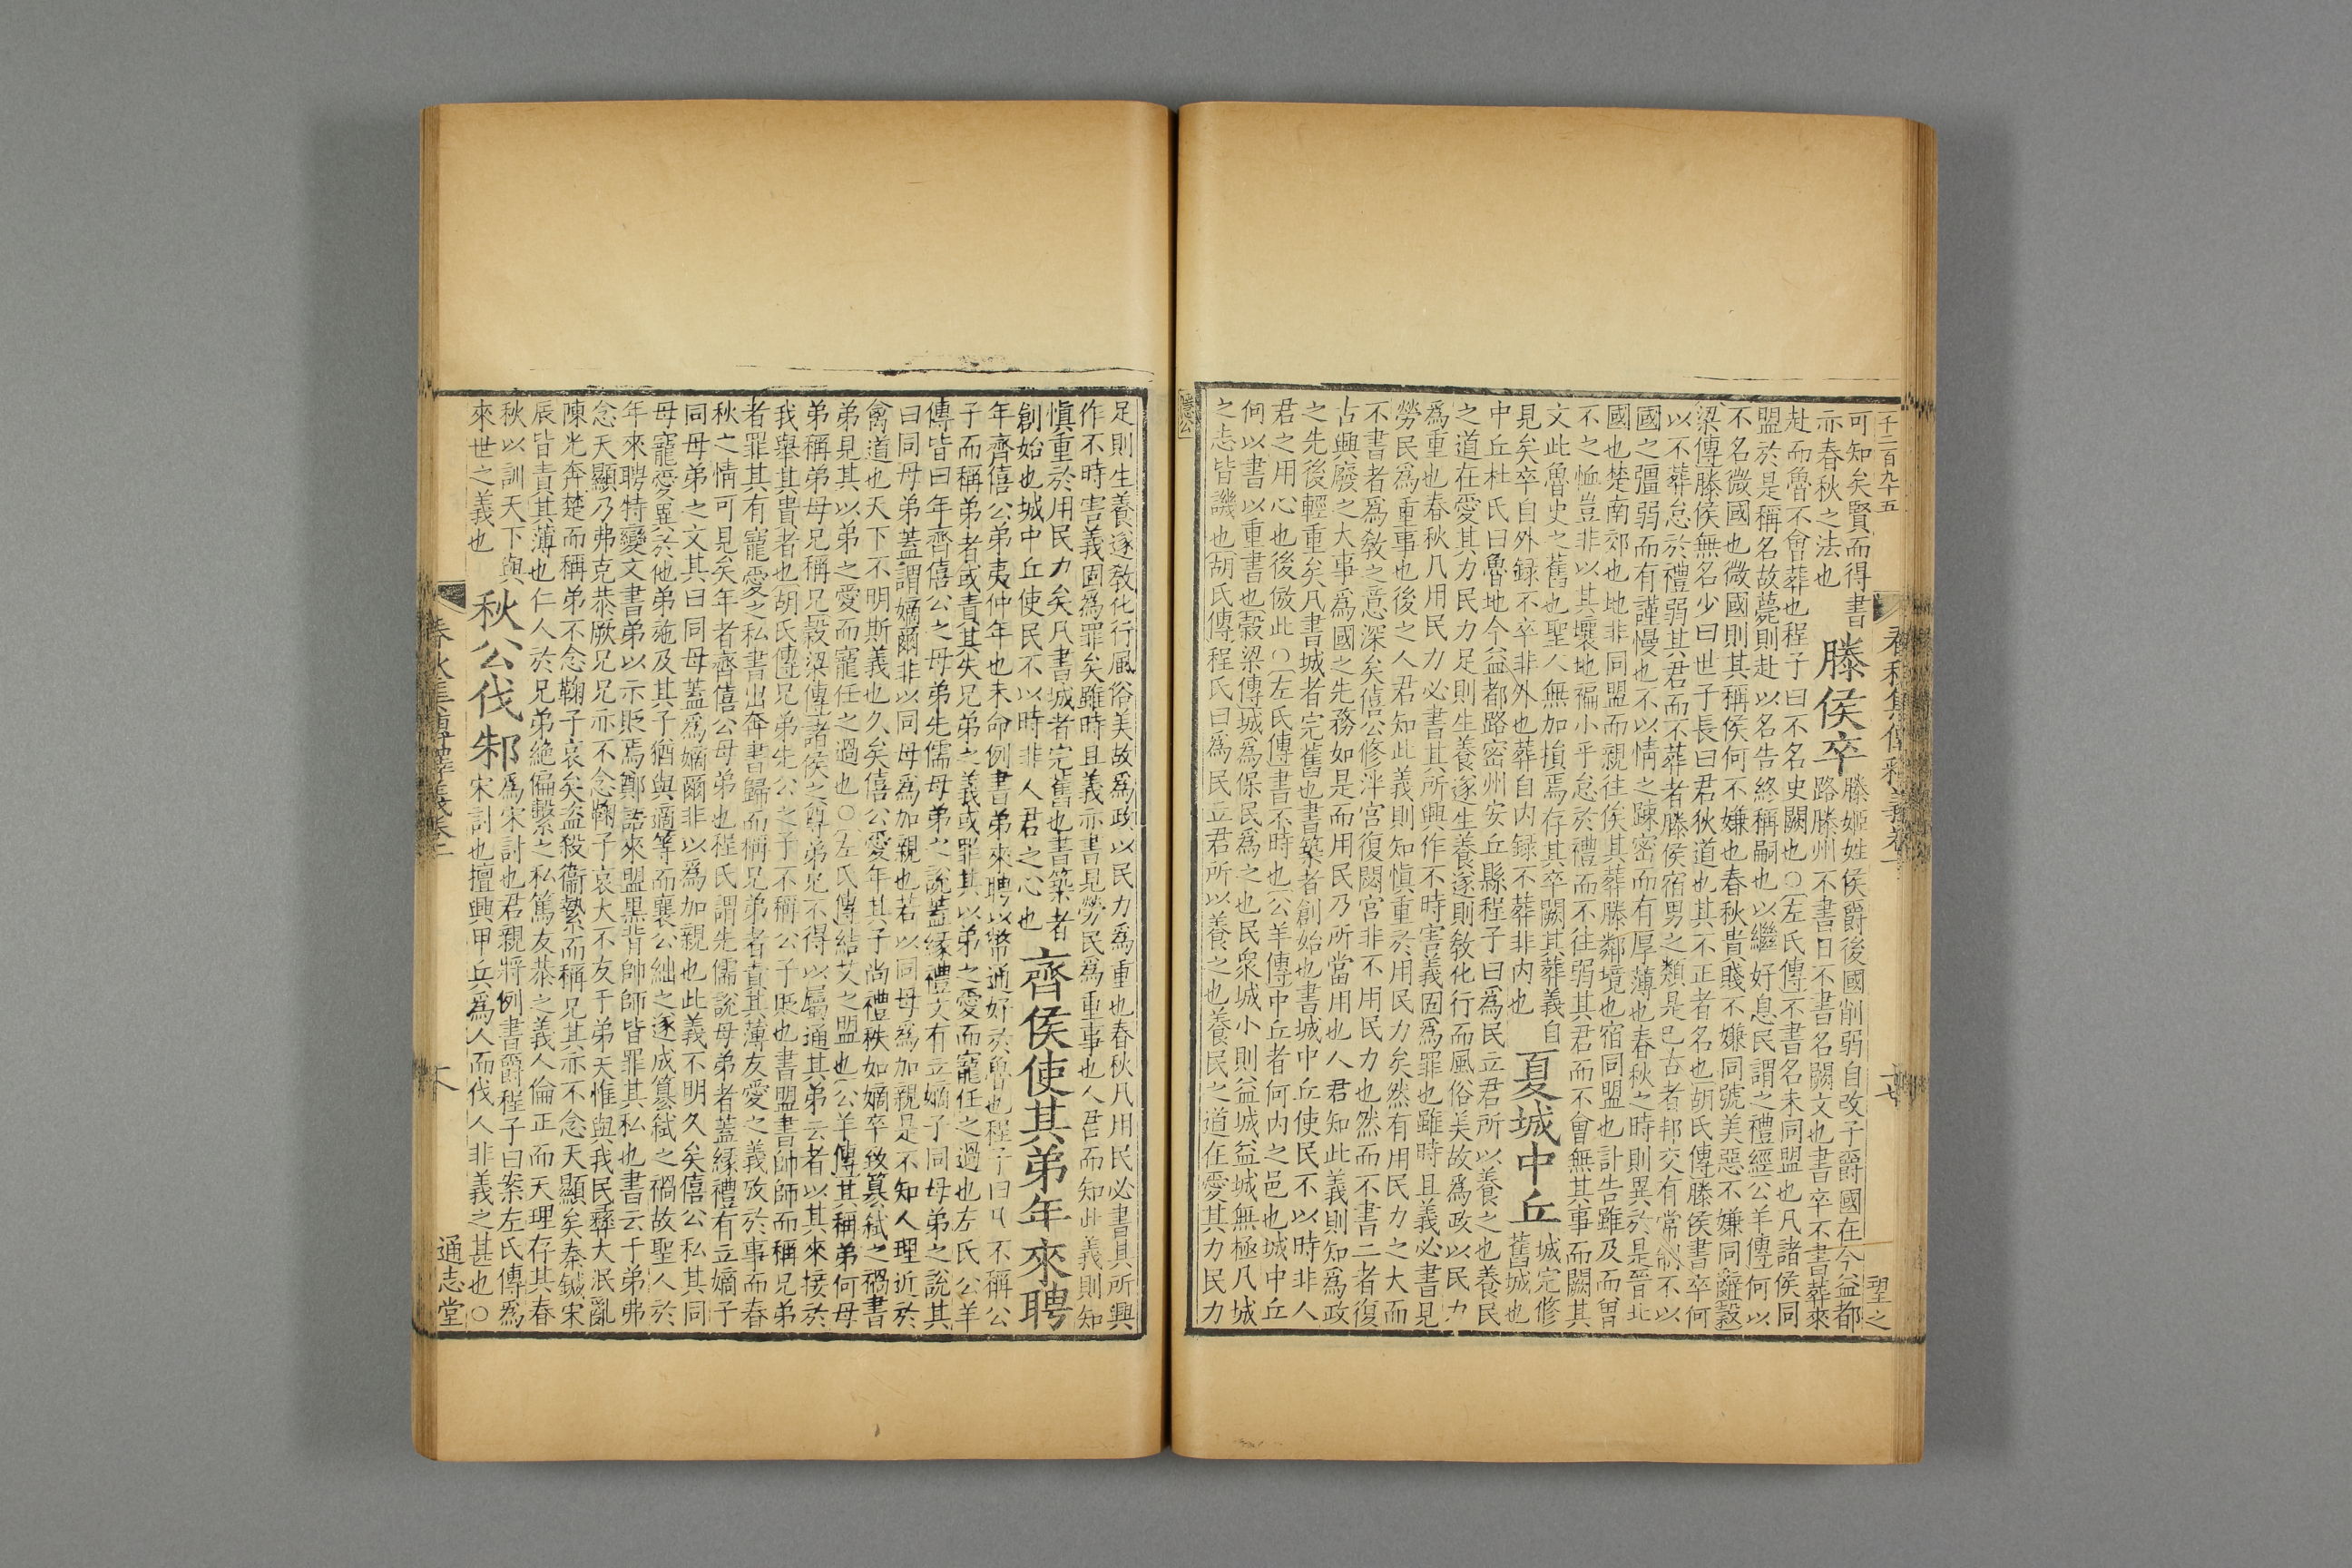 子二百九十五
理之
可知矣賢而得書
亦春秋之法也
滕侯卒
滕姬姓侯爵後國削弱自改子爵國在今益都
路滕州不書日不書名闕文也書卒不書葬來
赴而魯不會葬也程子曰不名史闕也○左氏傳不書名未同盟也凡諸侯同
盟於是稱名故薨則赴以名告終稱嗣也以繼好息民謂之禮經公羊傳何以
不名微國也微國則其稱侯何不嫌也春秋貴賤不嫌同號美惡不嫌同辭穀
梁傳滕侯無名少曰世子長曰君狄道也其不正者名也胡氏傳滕侯書卒何
以不葬怠於禮弱其君而不葬者滕侯宿男之類是已古者邦交有常制不以
國之彊弱而有謹慢也不以情之踈密而有厚薄也春秋之時則異於是晉北
國也楚南郊也地非同盟而親往俟其葬滕鄰境也宿同盟也訃告雖及而魯
不之恤豈非以其壤地褊小乎怠於禮而不往弱其君而不會無其事而闕其
文此魯史之舊也聖人無加損焉存其卒闕其葬義自
見矣卒自外録不卒非外也葬自内録不葬非内也
夏城中丘
城完修
舊城也
中丘杜氏曰魯地今益都路密州安丘縣程子曰爲民立君所以養之也養民
之道在愛其力民力足則生養遂生養遂則敎化行而風俗美故爲政以民力
爲重也春秋凡用民力必書其所興作不時害義固爲罪也雖時且義必書見
勞民爲重事也後之人君知此義則知愼重於用民力矣然有用民力之大而
不書者爲敎之意深矣僖公修泮宮復閟宮非不用民力也然而不書二者復
古興廢之大事爲國之先務如是而用民力乃所當用也人君知此義則知爲政
之先後輕重矣凡書城者完舊也書築者創始也書城中丘使民不以時非人
君之用心也後倣此○左氏傳書不時也公羊傳中丘者何内之邑也城中丘
何以書以重書也穀梁傳城爲保民爲之也民衆城小則益城益城無極凡城
之志皆譏也胡氏傳程氏曰爲民立君所以養之也養民之道在愛其力民力
足則生養遂敎化行風俗美故爲政以民力爲重也春秋凡用民必書其所興
作不時害義固爲罪矣雖時且義亦書見勞民爲重事也人君而知此義則知
愼重於用民力矣凡書城者完舊也書築者
創始也城中丘使民不以時非人君之心也
齊侯使其弟年來聘
年齊僖公弟夷仲年也未命例書弟來聘以幣通好於魯也程子曰凡不稱公
子而稱弟者或責其失兄弟之義或罪其以弟之愛而寵任之過也左氏公羊
傳皆曰年齊僖公之母弟先儒母弟之說蓋緣禮文有立嫡子同母弟之說其
曰同母弟蓋謂嫡爾非以同母爲加親也若以同母爲加親是不知人理近於
禽道也天下不明斯義也久矣僖公愛年其子尚禮秩如嫡卒致簒弑之禍書
弟見其以弟之愛而寵任之過也○左氏傳結艾之盟也公羊傳其稱弟何母
弟稱弟母兄稱兄穀梁傳諸侯之尊弟兄不得以屬通其弟云者以其來接於
我舉其貴者也胡氏傳兄弟先公之子不稱公子貶也書盟書帥師而稱兄弟
者罪其有寵愛之私書出奔書歸而稱兄弟者責其薄友愛之義攷於事而春
秋之情可見矣年者齊僖公母弟也程氏謂先儒說母弟者蓋緣禮有立嫡子
同母弟之文其曰同母蓋爲嫡爾非以爲加親也此義不明久矣僖公私其同
母寵愛異於他弟施及其子猶與嫡等而襄公絀之遂成簒弑之禍故聖人於
年來聘特變文書弟以示貶焉鄭語來盟黑背帥師皆罪其私也書云于弟弗
念天顯乃弗克恭厥兄兄亦不念鞠子哀大不友于弟天惟與我民彝大泯亂
陳光奔楚而稱弟不念鞠子哀矣盗殺衞縶而稱兄其亦不念天顯矣秦鍼宋
辰皆責其薄也仁人於兄弟絶偏繫之私篤友恭之義人倫正而天理存其春
秋以訓天下與
來世之義也
秋公伐邾
爲宋討也君親將例書爵程子曰案左氏傳爲
宋討也擅興甲兵爲人而伐人非義之甚也○
通志堂